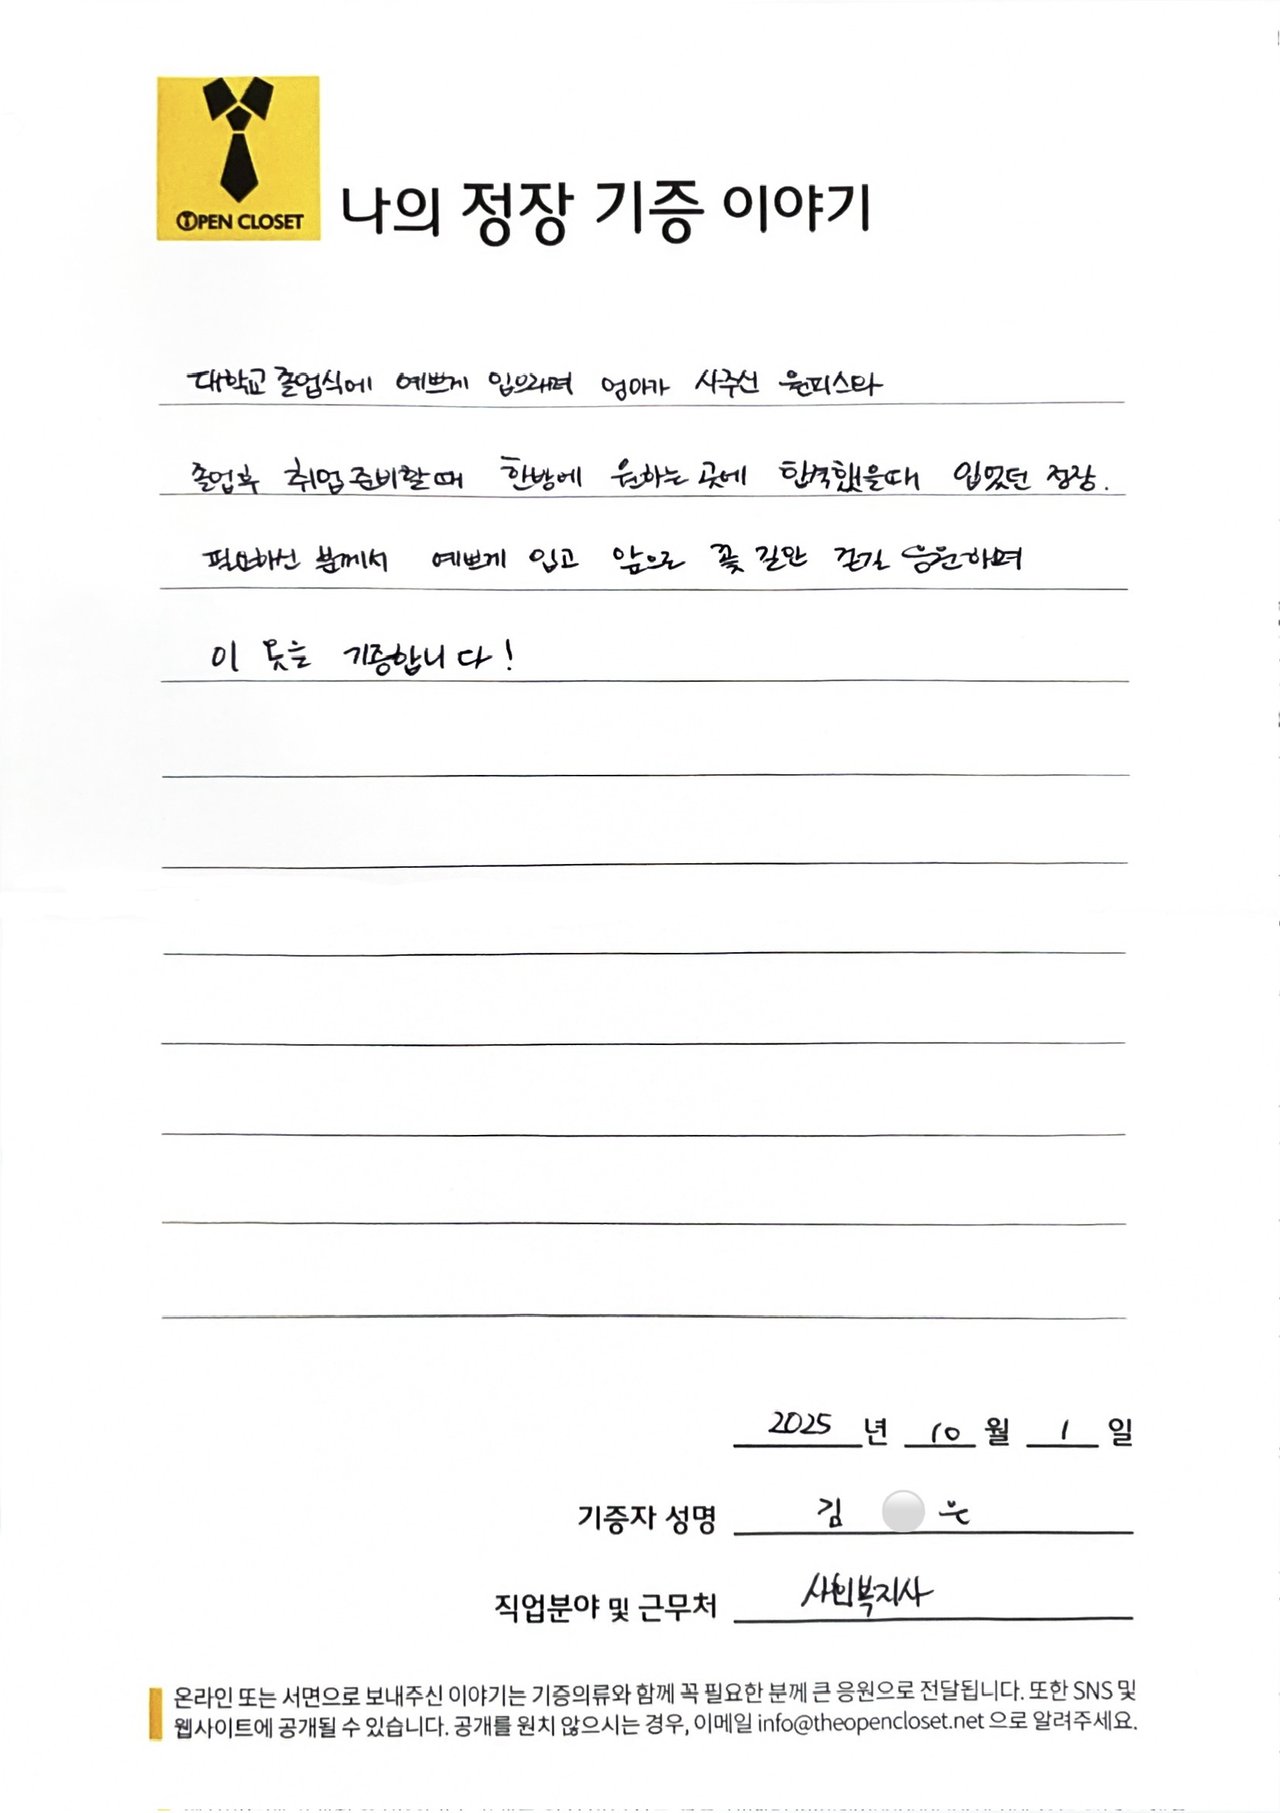 OPEN CLOSET
나의 정장 기증 이야기
대학교 졸업식에 예쁘게 입으래며 엄마가 사주신 원피스와
졸업후 취업준비할때 한방에 원하는 곳에 합격했을때 입었던 정장.
필요하신 분께서 예쁘게 입고 앞으로 꽃 길만 걷길 응원하며
이 옷을 기증합니다!
2025 년 10 월 1 일
기증자 성명 김 은
직업분야 및 근무처 사회복지사
온라인 또는 서면으로 보내주신 이야기는 기증의류와 함께 꼭 필요한 분께 큰 응원으로 전달됩니다. 또한 SNS 및
웹사이트에 공개될 수 있습니다. 공개를 원치 않으시는 경우, 이메일 info@theopencloset.net 으로 알려주세요.